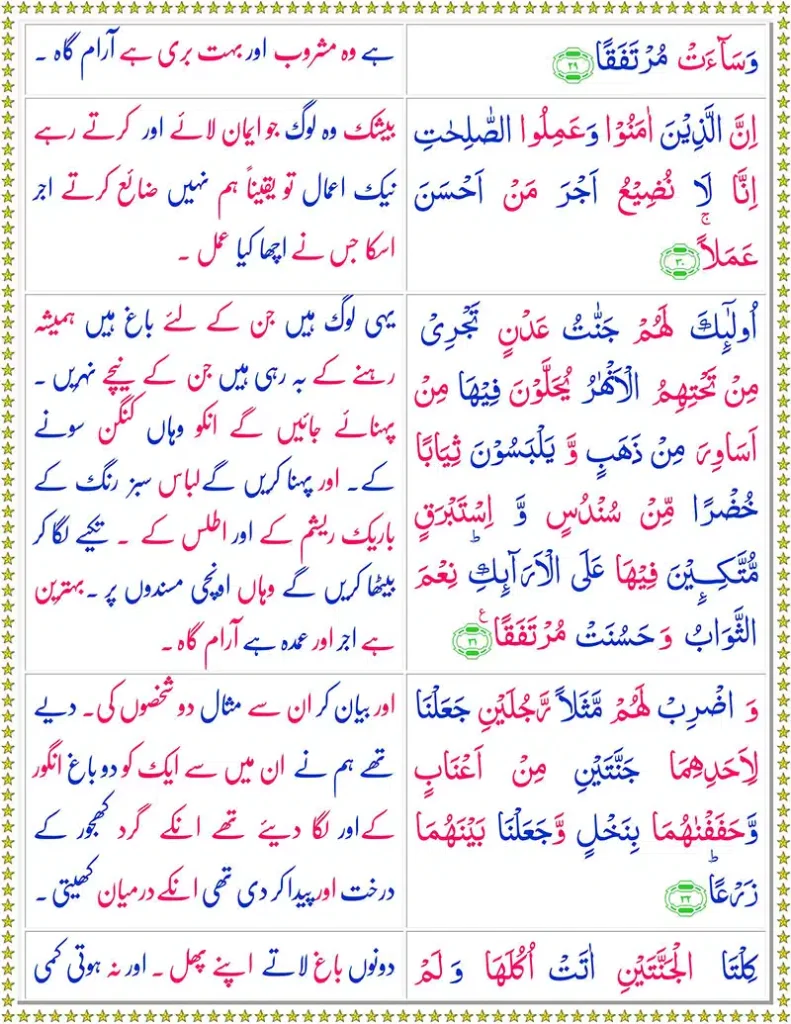 وَسَآءَتْ مُرْتَفَقًا ﴿۲۹﴾
ہے وہ مشروب اور بہت بری ہے آرام گاہ ۔
اِنَّ الَّذِيْنَ اٰمَنُوْا وَعَمِلُوا الصّٰلِحٰتِ
اِنَّا لَا نُضِيْعُ اَجْرَ مَنْ اَحْسَنَ
عَمَلًاۚ ﴿۳۰﴾
بیشک وہ لوگ جو ایمان لائے اور کرتے رہے
نیک اعمال تو یقیناً ہم نہیں ضائع کرتے اجر
اسکا جس نے اچھا کیا عمل ۔
اُولٰٓئِكَ لَهُمْ جَنّٰتُ عَدْنٍ تَجْرِىْ
مِنْ تَحْتِهِمُ الْاَنْهٰرُ يُحَلَّوْنَ فِيْهَا مِنْ
اَسَاوِرَ مِنْ ذَهَبٍ وَّ يَلْبَسُوْنَ ثِيَابًا
خُضْرًا مِّنْ سُنْدُسٍ وَّ اِسْتَبْرَقٍ
مُّتَّكِـِٕيْنَ فِيْهَا عَلَى الْاَرَآئِكِؕ نِعْمَ
الثَّوَابُ وَحَسُنَتْ مُرْتَفَقًا ﴿۳۱﴾ع
یہی لوگ ہیں جن کے لئے باغ ہیں ہمیشہ
رہنے کے بہ رہی ہیں جن کے نیچے نہریں ۔
پہنائے جائیں گے انکو وہاں کنگن سونے
کے۔ اور پہنا کریں گے لباس سبز رنگ کے
باریک ریشم کے اور اطلس کے ۔ تکیے لگا کر
بیٹھا کریں گے وہاں اونچی مسندوں پر ۔ بہترین
ہے اجر اور عمدہ ہے آرام گاہ ۔
وَ اضْرِبْ لَهُمْ مَّثَلًا رَّجُلَيْنِ جَعَلْنَا
لِاَحَدِهِمَا جَنَّتَيْنِ مِنْ اَعْنَابٍ
وَّحَفَفْنٰهُمَا بِنَخْلٍ وَّجَعَلْنَا بَيْنَهُمَا
زَرْعًاؕ ﴿۳۲﴾
اور بیان کر ان سے مثال دو شخصوں کی۔ دیے
تھے ہم نے ان میں سے ایک کو دو باغ انگور
کے اور لگا دیئے تھے انکے گرد کھجور کے
درخت اور پیدا کر دی تھی انکے درمیان کھیتی ۔
كِلْتَا الْجَنَّتَيْنِ اٰتَتْ اُكُلَهَا وَ لَمْ
دونوں باغ لاتے اپنے پھل ۔ اور نہ ہوتی کمی